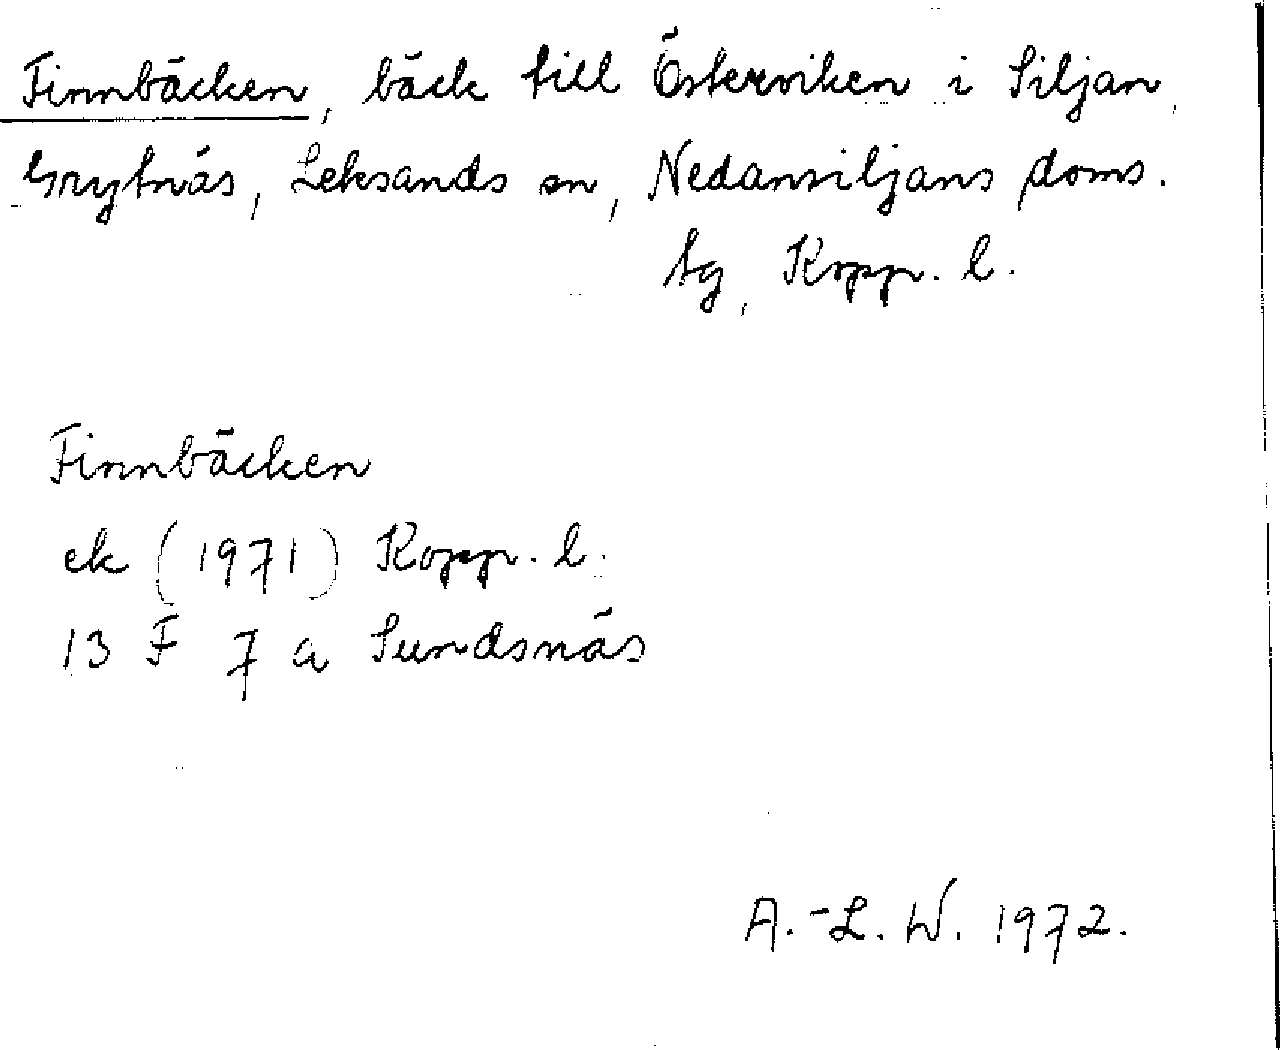 Finnbäcken, bäck till Österviken i Siljan,
Grytnäs, Leksands sn, Nedansiljans doms.
tg, Kopp. l.
Finnbäcken
ek (1971) Kopp. l.
13 F 7 a Sundsnäs
A.-L. W. 1972.